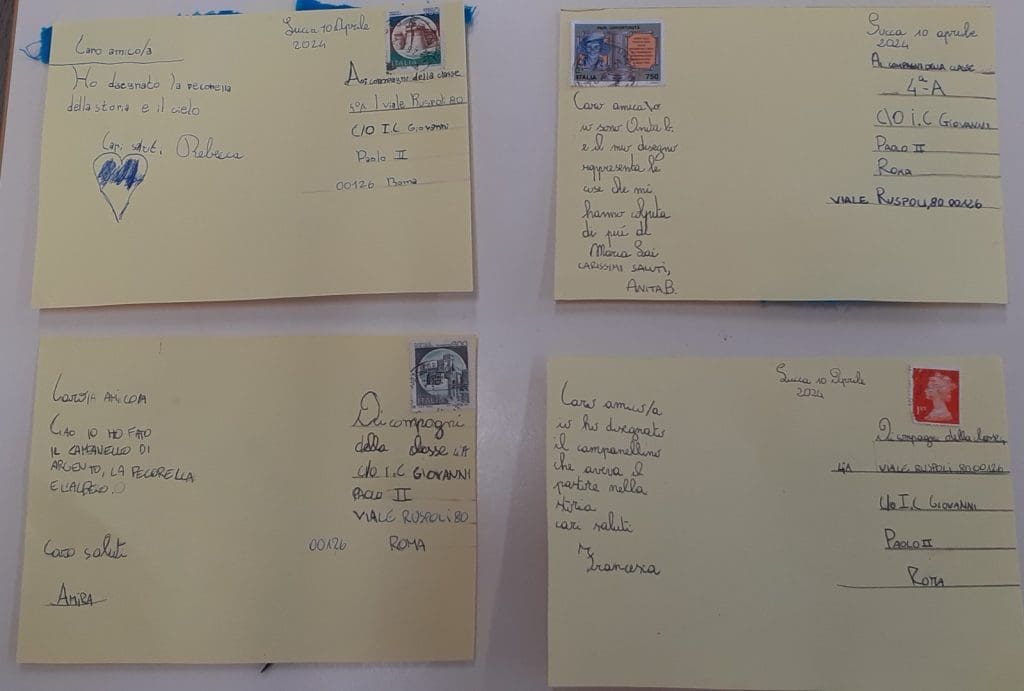 Lucca 10 Aprile
2024
Caro amico/a
Ho disegnato la pecorella
della storia e il cielo
Rebecca
Ai compagni della classe
4ºA viale Ruspoli 80
C/O I.C Giovanni
Paolo II
00126 Roma
ITALIA
Lucca 10 aprile
2024
PARI OPPORTUNITÀ
ITALIA 750
Caro amica/o
io sono Anita B.
e il mio disegno
rappresenta le
cose che mi
hanno colpita
di piú di
Maria Lai
CARISSIMI SALUTI,
ANITA B.
Ai COMPAGNI DELLA CLASSE
4ª-A
C/O I.C GIOVANNI
PAOLO II
ROMA
VIALE RUSPOLI, 80 00126
CARO/A AMICO/A
CIAO IO HO FATO
IL CAMPANELLO DI
ARGENTO, LA PECORELLA
E L'ALBERO.
Caro saluti
AMIRA
ITALIA
Ai compagni
della classe 4ªA
C/O I.C GIOVANNI
PAOLO II
VIALE RUSPOLI 80
00126 ROMA
Lucca 10 Aprile
2024
1ST
Caro amico/a
io ho disegnato
il campanellino
che aveva il
nella
storia
cari saluti
Francesca
Ai compagni della
4ªA VIALE RUSPOLI 80 00126
C/o I.C GIOVANNI
PAOLO II
ROMA